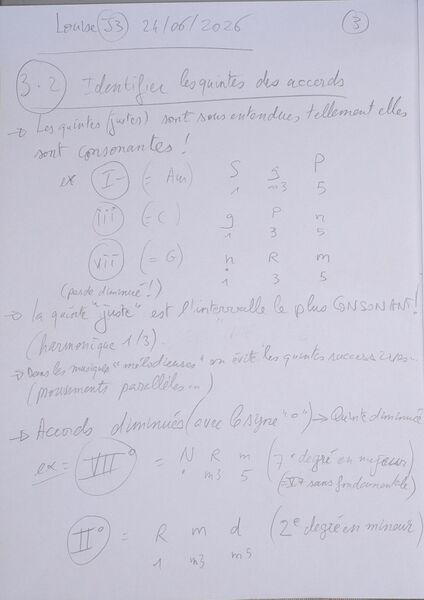 Louise S3 24/06/2026
3
3.2 Identifier les quintes des accords
→ Les quintes (justes) sont sous entendues tellement elles
sont consonantes !
ex I- (= Am) S g P
1 m3 5
iii (= C) g P n
1 3 5
vii (= G) n R m
1 3 5
(pas de diminué !)
→ la quinte "juste" est l'intervalle le plus CONSONANT !
(harmonique 1/3).
→ Dans les musiques "mélodieuses" on évite les quintes successives...
(mouvements parallèles...)
→ Accords diminués (avec le signe "o") → Quinte diminuée
ex = VII° = N R m (7e degré en majeur)
m3 5 (=V7 sans fondamentale)
II° = R m d (2e degré en mineur)
1 m3 m5